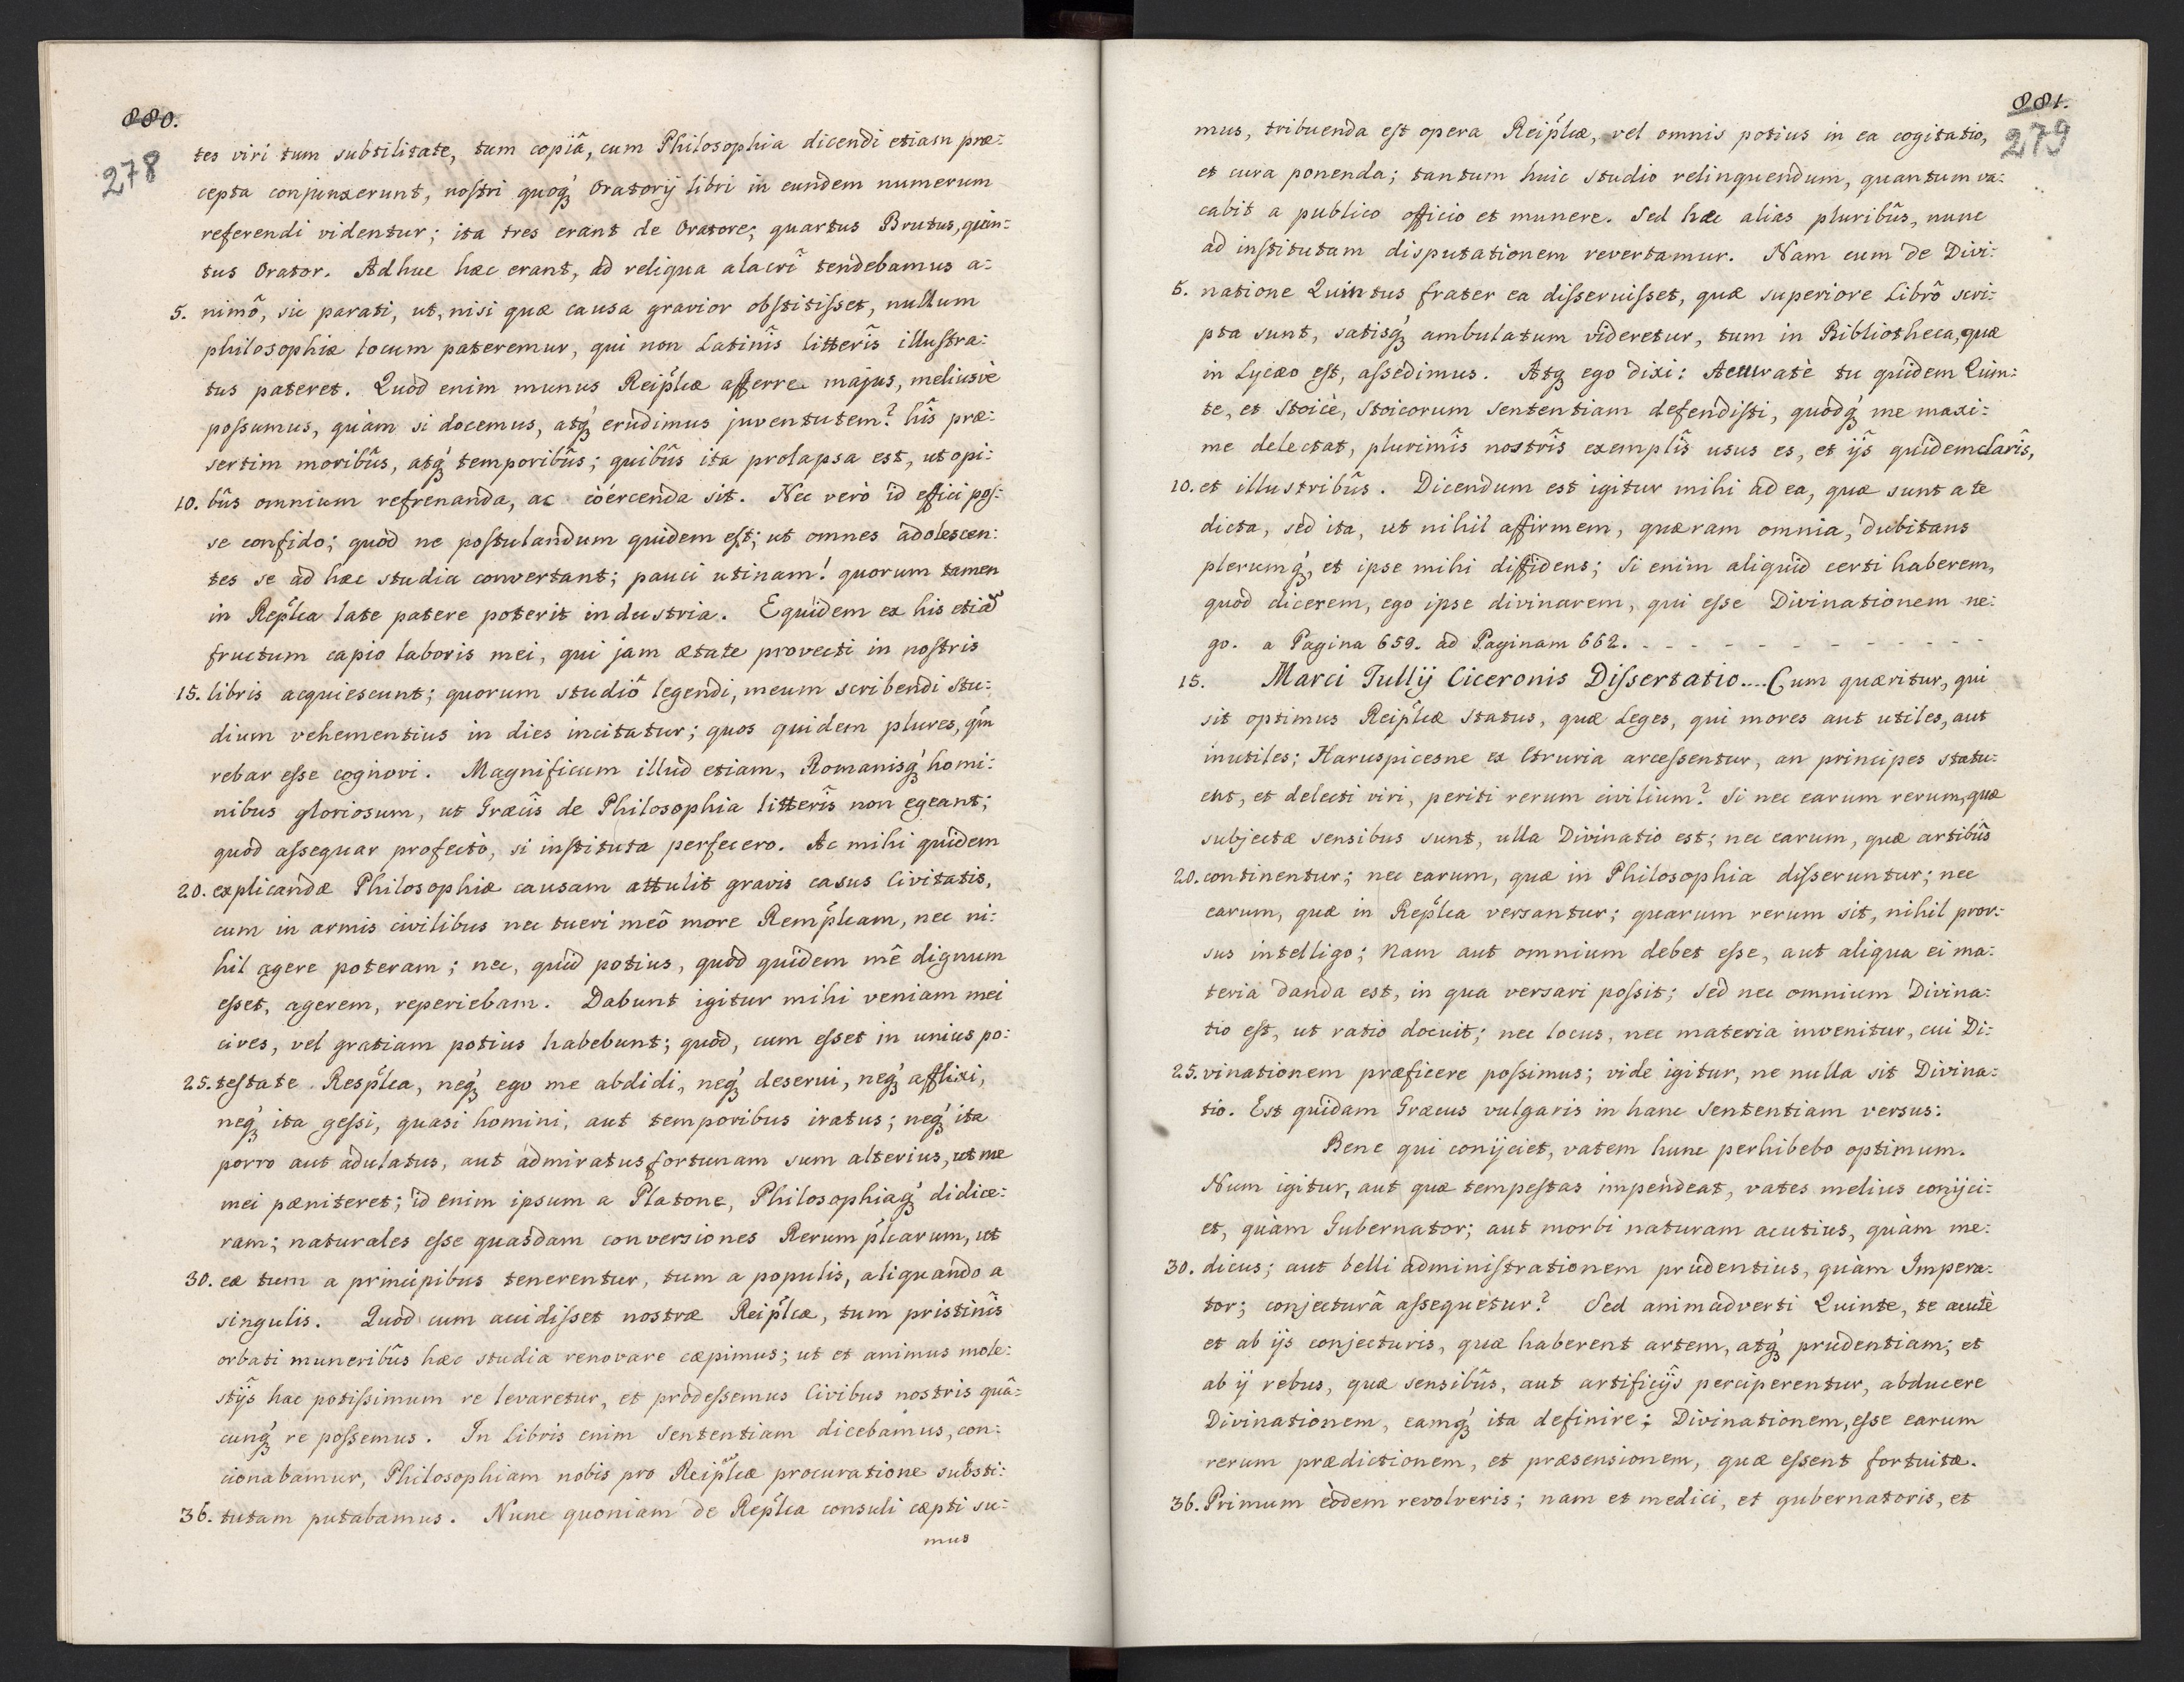 880.
278
tes viri tum subtilitate, tum copiâ, cum Philosophia dicendi etiam præ:
cepta conjunxerunt, nostri quoq́ Oratorij libri in eundem numerum
referendi videntur; ita tres erant de Oratore; quartus Brutus, quin:
tus Orator. Adhuc hæc erant, ad reliqua alacrî tendebamus a:
5. nimô, sic parati, ut, nisi quæ causa gravior obstitisset, nullum
philosophiæ locum pateremur, qui non Latinîs litterîs illustra:
tus pateret. Quod enim munus Reip̃licæ afferre majus, meliusvè
possumus, quàm si docemus, atq́ erudimus juventutem? hîs præ:
sertim moribûs, atq́ temporibûs; quibûs ita prolapsa est, ut opi:
10. bûs omnium refrenanda, ac coërcenda sit. Nec verò id effici pos:
se confido; quod ne postulandum quidem est; ut omnes adolescen:
tes se ad hæc studia convertant; pauci utinam! quorum tamen
in Rep̃lica late patere poterit industria. Equidem ex his etiã
fructum capio laboris mei, qui jam ætate provecti in nostris
15. libris acquiescunt; quorum studiô legendi, meum scribendi stu:
dium vehementius in dies incitatur; quos quidem plures, qm̃
rebar esse cognovi. Magnificum illud etiam, Romanisq́ homi:
nibus gloriosum, ut Græcîs de Philosophia litterîs non egeant;
quod assequar profectò, si instituta perfecero. Ac mihi quidem
20. explicandæ Philosophiæ causam attulit gravis casus Civitatis,
cum in armis civilibus nec tueri meô more Remp̃licam, nec ni:
hil agere poteram; nec, quid potius, quod quidem mê dignum
esset, agerem, reperiebam. Dabunt igitur mihi veniam mei
cives, vel gratiam potius habebunt; quod, cum esset in unius po:
25. testate Resp̃lica, neq́ ego me abdidi, neq́ deserui, neq́ afflixi,
neq́ ita gessi, quasi homini, aut temporibus iratus; neq́ ita
porro aut adulatus, aut admiratus fortunam sum alterius, ut me
mei pæniteret; id enim ipsum a Platone, Philosophiaq́ didice:
ram; naturales esse quasdam conversiones Rerump̃licarum, ut
30. eæ tum a principibus tenerentur, tum a populis, aliquando a
singulis. Quod cum accidisset nostræ Reip̃licæ, tum pristinîs
orbati muneribûs hæc studia renovare cæpimus; ut et animus mole:
stijs hac potissimum re levaretur, et prodessemus Civibus nostris quâ:
cunq́ re possemus. In Libris enim Sententiam dicebamus, con:
cionabamur, Philosophiam nobis pro Reip̃licæ procuratione substi:
36. tutam putabamus. Nunc quoniam de Rep̃lica consuli cæpti su:
mus
881.
279
mus, tribuenda est opera Reip̃licæ, vel omnis potius in ea cogitatio,
et cura ponenda; tantum huic studio relinquendum, quantum va:
cabit a publico officio et munere. Sed hæc alias pluribûs, nunc
ad institutam disputationem revertamur. Nam cum de Divi:
5. natione Quintus frater ea disseruisset, quæ superiore Librô scri:
pta sunt, satisq́ ambulatum videretur, tum in Bibliotheca, quæ
in Lycæo est, assedimus. Atq́ ego dixi: Accuratè tu quidem Quin:
te, et Stoicè, Stoicorum Sententiam defendisti, quodq́ me maxi:
me delectat, plurimîs nostrîs exemplîs usus es, et ijs quidem clarîs,
10. et illustribûs. Dicendum est igitur mihi ad ea, quæ sunt a te
dicta, sed ita, ut nihil affirmem, quæram omnia, dubitans
plerumq́, et ipse mihi diffidens; Si enim aliquid certi haberem,
quod dicerem, ego ipse divinarem, qui esse Divinationem ne:
go. a Pagina 659. ad Paginam 662. - - - - - - - - - - - -
15. Marci Tullij Ciceronis Dissertatio.... Cum quæritur, qui
sit optimus Reip̃licæ Status, quæ Leges, qui mores aut utiles, aut
inutiles; Haruspicesne ex Etruria arcessentur, an principes statu:
ent, et delecti viri, periti rerum civilium? Si nec earum rerum, quæ
subjectæ sensibus sunt, ulla Divinatio est; nec earum, quæ artibûs
20. continentur; nec earum, quæ in Philosophia disseruntur; nec
earum, quæ in Rep̃lica versantur; quarum rerum sit, nihil pror:
sus intelligo; Nam aut omnium debet esse, aut aliqua ei ma:
teria danda est, in qua versari possit; Sed nec omnium Divina:
tio est, ut ratio docuit; nec locus, nec materia invenitur, cui Di:
25. vinationem præficere possimus; vide igitur, ne nulla sit Divina:
tio. Est quidam Græcus vulgaris in hanc Sententiam versus:
Bene qui conijciet, vatem hunc perhibebo optimum.
Num igitur, aut quæ tempestas impendeat, vates melius conijci:
et, quàm Gubernator; aut morbi naturam acutius, quàm me:
30. dicus; aut belli administrationem prudentius, quàm Impera:
tor; conjecturâ assequetur? Sed animadverti Quinte, te acutè
et ab ijs conjecturis, quæ haberent artem, atq́ prudentiam; et
ab ij rebus, quæ sensibûs, aut artificijs perciperentur, abducere
Divinationem, eamq́ ita definire; Divinationem, esse earum
rerum prædictionem, et præsensionem, quæ essent fortuitæ.
36. Primum eòdem revolveris; nam et medici, et gubernatoris, et